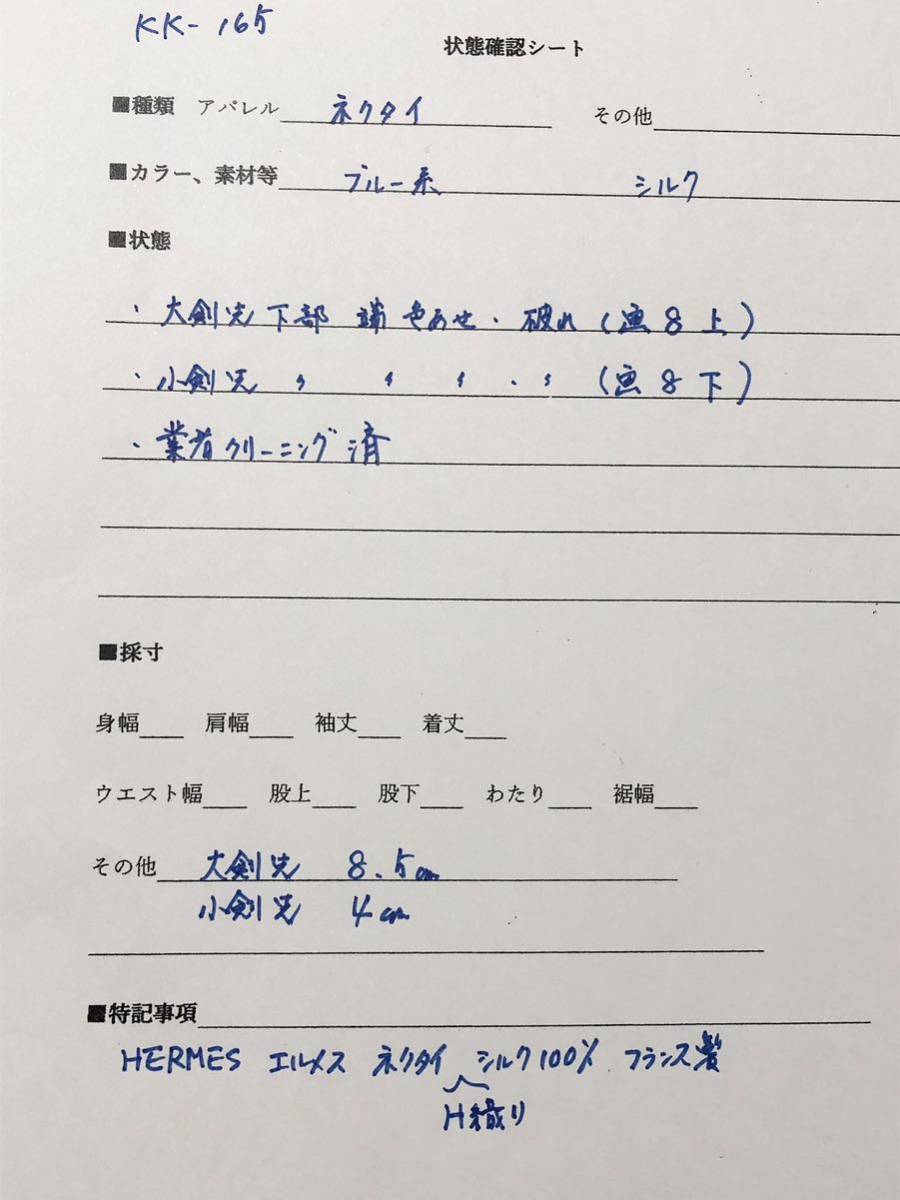 KK-165
状態確認シート
■種類 アパレル ネクタイ その他
■カラー、素材等 ブルー系 シルク
■状態
・大剣先下部 端 色あせ・破れ (画8上)
・小剣先 〃 〃 〃・〃 (画8下)
・業者クリーニング済
■採寸
身幅 肩幅 袖丈 着丈
ウエスト幅 股上 股下 わたり 裾幅
その他 大剣先 8.5cm
小剣先 4cm
■特記事項
HERMES エルメス ネクタイ シルク100% フランス製
H織り